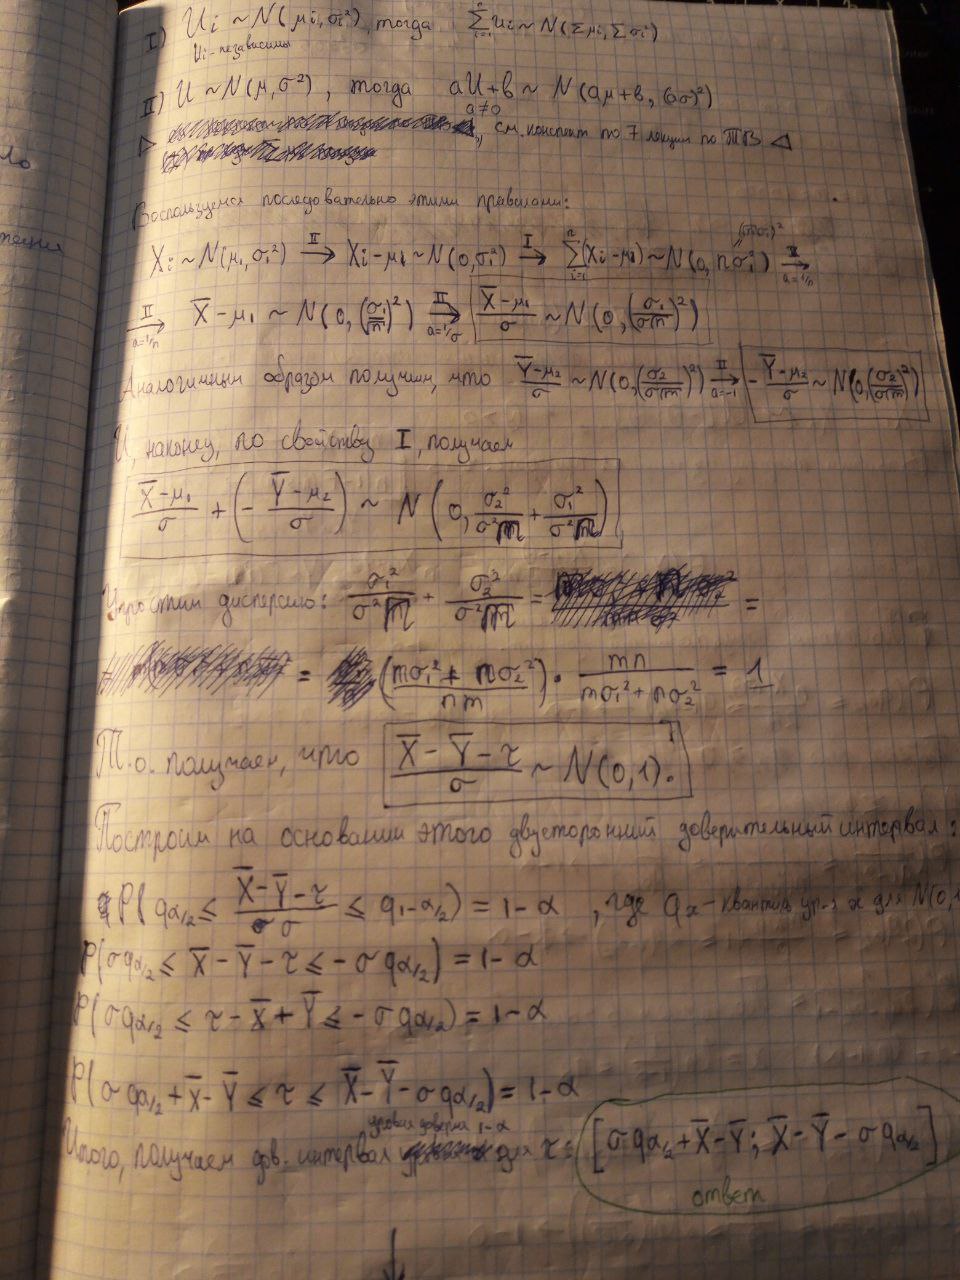 I) Ui ~ N(μi, σi²), тогда Σ_{i=1}^{n} Ui ~ N(Σμi, Σσi²)
Ui - независимы
II) U ~ N(μ, σ²), тогда aU+b ~ N(aμ+b, (aσ)²)
a≠0
▷ см. конспект по 7 лекции по ТВ ◁
Воспользуемся последовательно этими правилами:
Xi ~ N(μ₁, σ₁²) →(II) Xi - μ₁ ~ N(0, σ₁²) →(I) Σ_{i=1}^{n} (Xi - μ₁) ~ N(0, nσ₁²) →(II, a=1/n)
→(II, a=1/n) X̄ - μ₁ ~ N(0, (σ₁/√n)²) →(II, a=1/σ) (X̄ - μ₁)/σ ~ N(0, (σ₁/(σ√n))²)
Аналогичным образом получим, что (Ȳ - μ₂)/σ ~ N(0, (σ₂/(σ√m))²) →(II, a=-1) -(Ȳ - μ₂)/σ ~ N(0, (σ₂/(σ√m))²)
И, наконец, по свойству I, получаем
(X̄ - μ₁)/σ + (-(Ȳ - μ₂)/σ) ~ N(0, σ₂²/(σ²m) + σ₁²/(σ²n))
Упростим дисперсию: σ₁²/(σ²n) + σ₂²/(σ²m) = =
= ((mσ₁² + nσ₂²)/(nm)) · mn/(mσ₁² + nσ₂²) = 1
Т.о. получаем, что (X̄ - Ȳ - τ)/σ ~ N(0,1).
Построим на основании этого двусторонний доверительный интервал:
P(q_{α/2} ≤ (X̄ - Ȳ - τ)/σ ≤ q_{1-α/2}) = 1-α, где q_x - квантиль ур-я x для N(0,1
P(σq_{α/2} ≤ X̄ - Ȳ - τ ≤ -σq_{α/2}) = 1-α
P(σq_{α/2} ≤ τ - X̄ + Ȳ ≤ -σq_{α/2}) = 1-α
P(σq_{α/2} + X̄ - Ȳ ≤ τ ≤ X̄ - Ȳ - σq_{α/2}) = 1-α
уровня доверия 1-α
Итого, получаем дов. интервал для τ: [σq_{α/2} + X̄ - Ȳ; X̄ - Ȳ - σq_{α/2}]
ответ